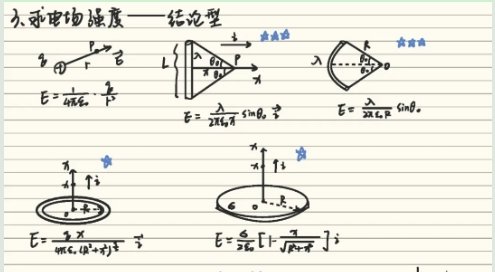 3.求电场强度——结论型
q P r E⃗
E = 1/4πε₀ · q/r²
L λ θ₀ θ₀ x P x i
E = λ/2πε₀x sinθ₀ i⃗
λ R θ₀ θ₀ O
E = λ/2πε₀R sinθ₀
x x i o R
E = qx/4πε₀(R²+x²)^3/2 i⃗
x x i σ o R
E = σ/2ε₀ [1- x/√R²+x²] i